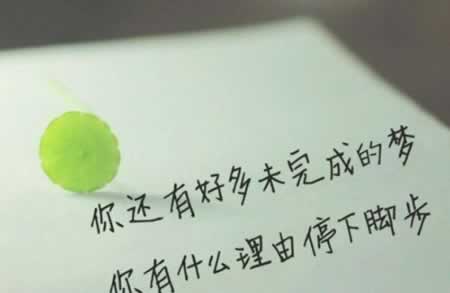 你还有好多未完成的梦
你有什么理由停下脚步